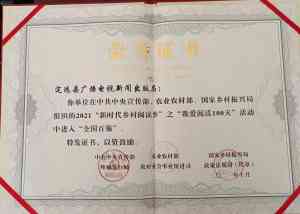 荣誉证书
定远县广播电视新闻出版局：
你单位在中共中央宣传部、农业农村部、国家乡村振兴局
组织的2021“新时代乡村阅读季”之“我爱阅读100天”活动
中进入“全国百强”。
特发证书，以资鼓励。
中共中央宣传部 农业农村部 国家乡村振兴局
印刷发行局 农村社会事业促进司